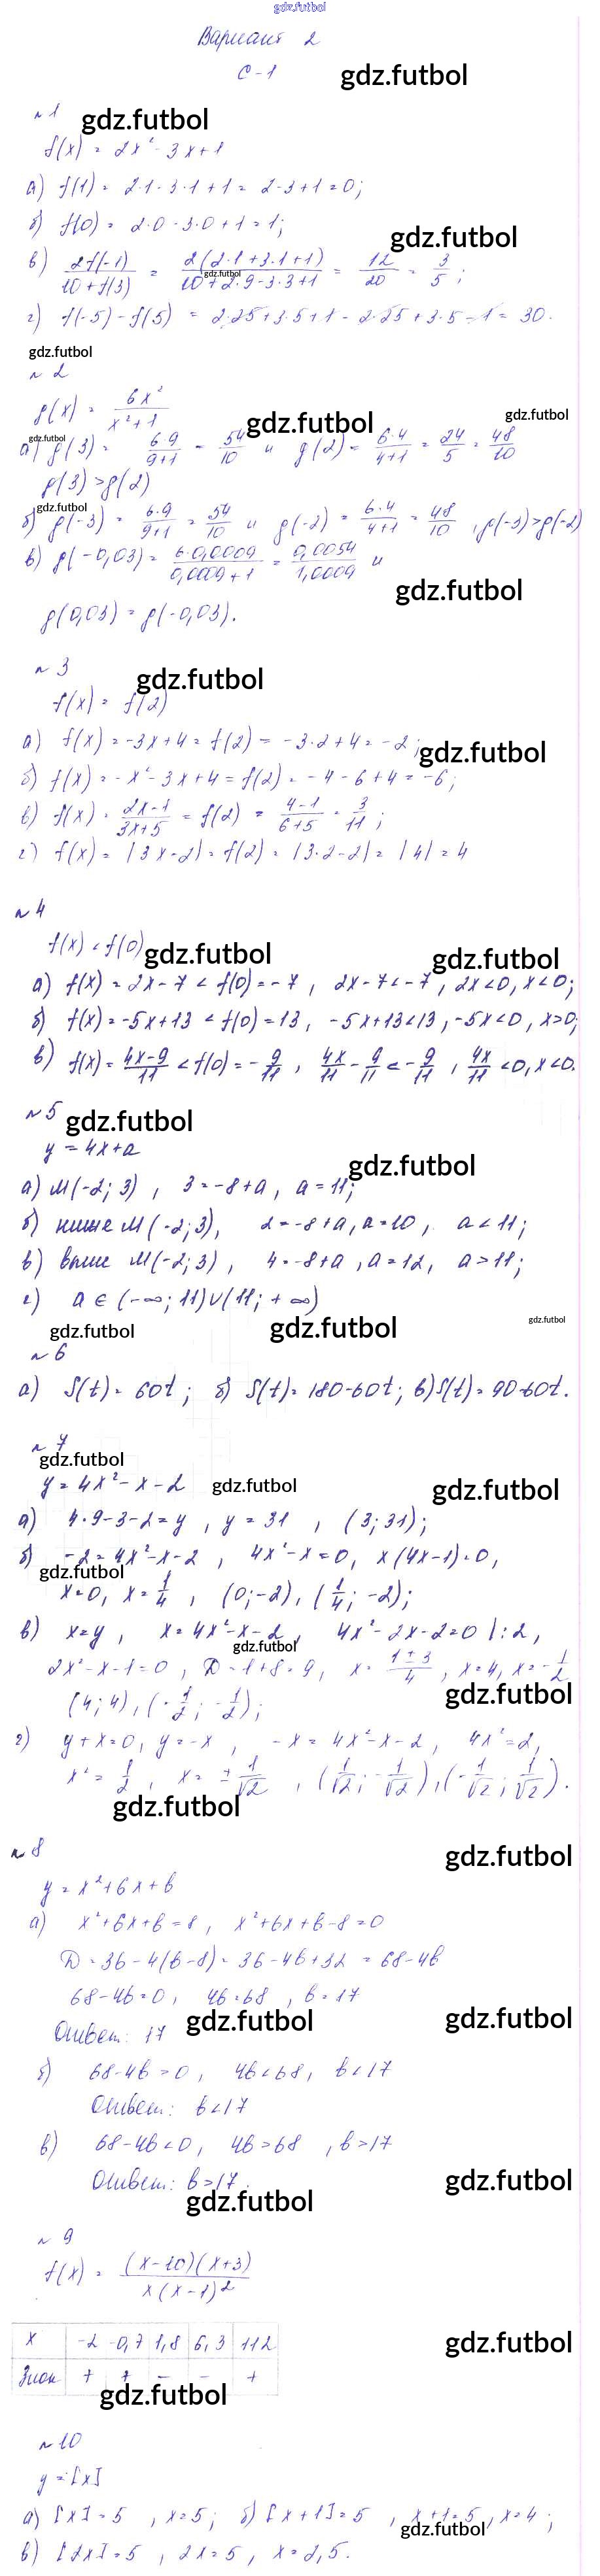 gdz.futbol
Вариант 2
С-1
gdz.futbol
№1
gdz.futbol
f(x) = 2x² - 3x + 1
а) f(1) = 2·1 - 3·1 + 1 = 2-3+1 = 0;
б) f(0) = 2·0 - 3·0 + 1 = 1;
gdz.futbol
в) 2f(-1)/(10+f(3)) = 2(2·1+3·1+1)/(10+2·9-3·3+1) = 12/20 = 3/5;
gdz.futbol
г) f(-5) - f(5) = 2·25+3·5+1 - 2·25+3·5-1 = 30.
gdz.futbol
№2
g(x) = 6x²/(x²+1)
gdz.futbol
gdz.futbol
gdz.futbol
а) g(3) = 6·9/(9+1) = 54/10 и g(2) = 6·4/(4+1) = 24/5 = 48/10
g(3) > g(2)
gdz.futbol
б) g(-3) = 6·9/(9+1) = 54/10 и g(-2) = 6·4/(4+1) = 48/10, g(-3)>g(-2)
в) g(-0,03) = 6·0,0009/(0,0009+1) = 0,0054/1,0009 и
gdz.futbol
g(0,03) = g(-0,03).
№3
gdz.futbol
f(x) = f(2)
а) f(x) = -3x+4 = f(2) = -3·2+4 = -2;
gdz.futbol
б) f(x) = -x²-3x+4 = f(2) = -4-6+4 = -6;
в) f(x) = (2x-1)/(3x+5) = f(2) = (4-1)/(6+5) = 3/11;
г) f(x) = |3x-2| = f(2) = |3·2-2| = |4| = 4
№4
f(x) < f(0)
gdz.futbol
gdz.futbol
а) f(x) = 2x-7 < f(0) = -7, 2x-7<-7, 2x<0, x<0;
б) f(x) = -5x+13 < f(0) = 13, -5x+13<13, -5x<0, x>0;
в) f(x) = (4x-9)/11 < f(0) = -9/11, 4x/11 - 9/11 < -9/11, 4x/11 <0, x<0.
№5
gdz.futbol
y = 4x+a
gdz.futbol
а) M(-2; 3), 3 = -8+a, a = 11;
б) ниже M(-2; 3), 2 = -8+a, a = 10, a < 11;
в) выше M(-2; 3), 4 = -8+a, a = 12, a > 11;
г) a ∈ (-∞; 11)∪(11; +∞)
gdz.futbol
gdz.futbol
gdz.futbol
№6
а) S(t) = 60t; б) S(t) = 180-60t; в) S(t) = 90-60t.
№7
gdz.futbol
y = 4x² - x - 2
gdz.futbol
gdz.futbol
а) 4·9-3-2 = y, y = 31, (3; 31);
б) -2 = 4x²-x-2, 4x²-x = 0, x(4x-1) = 0,
gdz.futbol
x = 0, x = 1/4, (0; -2), (1/4; -2);
в) x = y, x = 4x²-x-2, 4x²-2x-2 = 0 |:2,
gdz.futbol
2x²-x-1 = 0, D = 1+8 = 9, x = (1±3)/4, x = 4, x = -1/2
(4; 4), (-1/2; -1/2);
gdz.futbol
г) y+x = 0, y = -x, -x = 4x²-x-2, 4x² = 2,
x² = 1/2, x = ±1/√2, (1/√2; -1/√2), (-1/√2; 1/√2).
gdz.futbol
№8
gdz.futbol
y = x²+6x+b
а) x²+6x+b = 8, x²+6x+b-8 = 0
D = 36-4(b-8) = 36-4b+32 = 68-4b
68-4b = 0, 4b = 68, b = 17
gdz.futbol
gdz.futbol
Ответ: 17
б) 68-4b > 0, 4b < 68, b < 17
Ответ: b < 17
в) 68-4b < 0, 4b > 68, b > 17
Ответ: b > 17.
gdz.futbol
gdz.futbol
№9
f(x) = (x-10)(x+3)/(x(x-1)²)
x | -2 | -0,7 | 1,8 | 6,3 | 112
gdz.futbol
Знак | + | + | - | - | +
gdz.futbol
№10
y = [x]
а) [x] = 5, x = 5; б) [x+1] = 5, x+1 = 5, x = 4;
gdz.futbol
в) [2x] = 5, 2x = 5, x = 2,5.